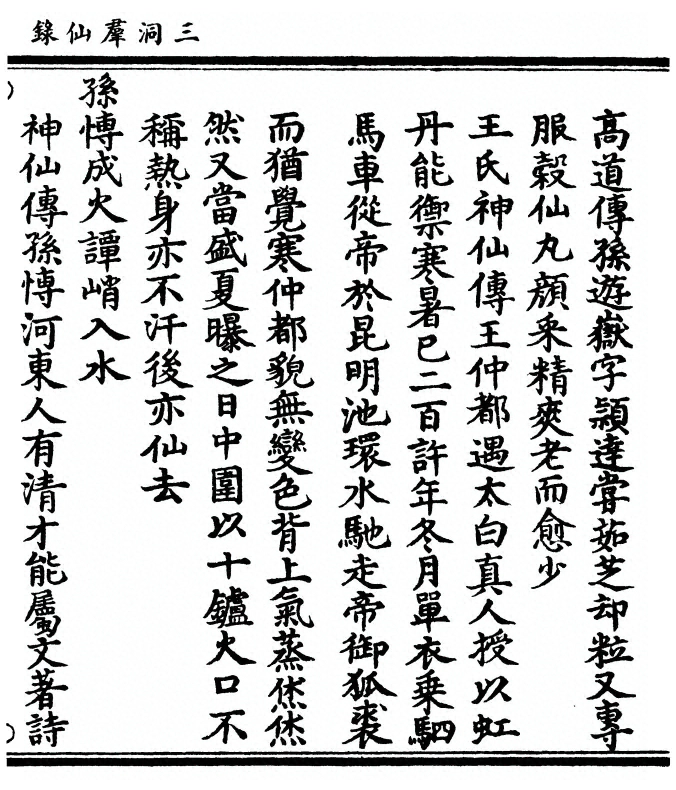 三洞羣仙錄
高道傳孫遊嶽字頴達嘗茹芝却粒又專
服穀仙丸顔采精爽老而愈少
王氏神仙傳王仲都遇太白真人授以虹
丹能禦寒暑已二百許年冬月單衣乗駟
馬車從帝於昆明池環水馳走帝御狐裘
而猶覺寒仲都貌無變色背上氣蒸烋烋
然又當盛夏曝之日中圍以十鑪火口不
稱熱身亦不汗後亦仙去
孫愽成火譚峭入水
神仙傳孫愽河東人有清才能屬文著詩